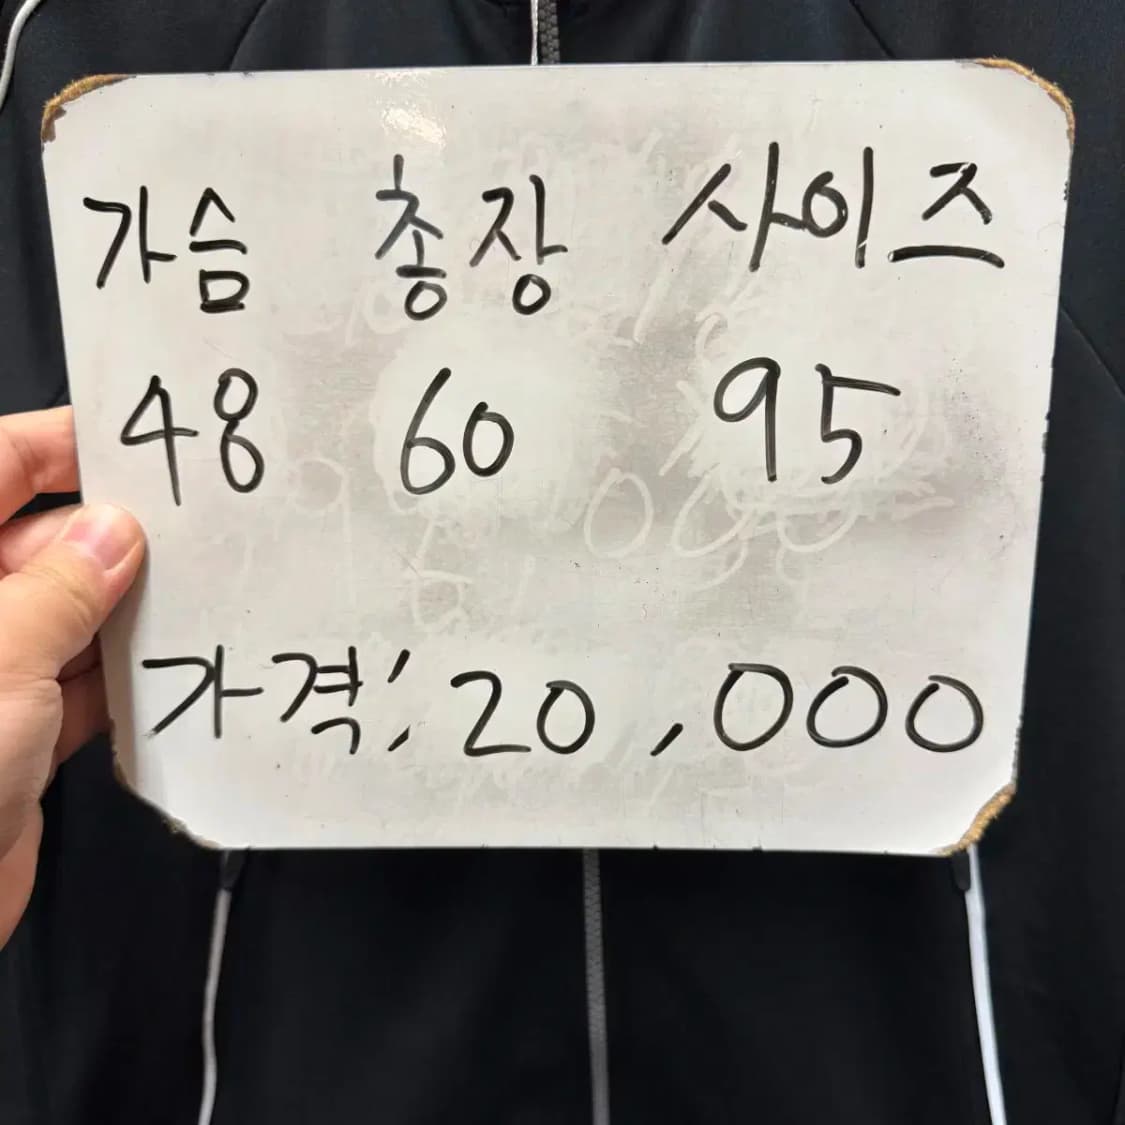 가슴 총장 사이즈
48 60 95
가격: 20,000